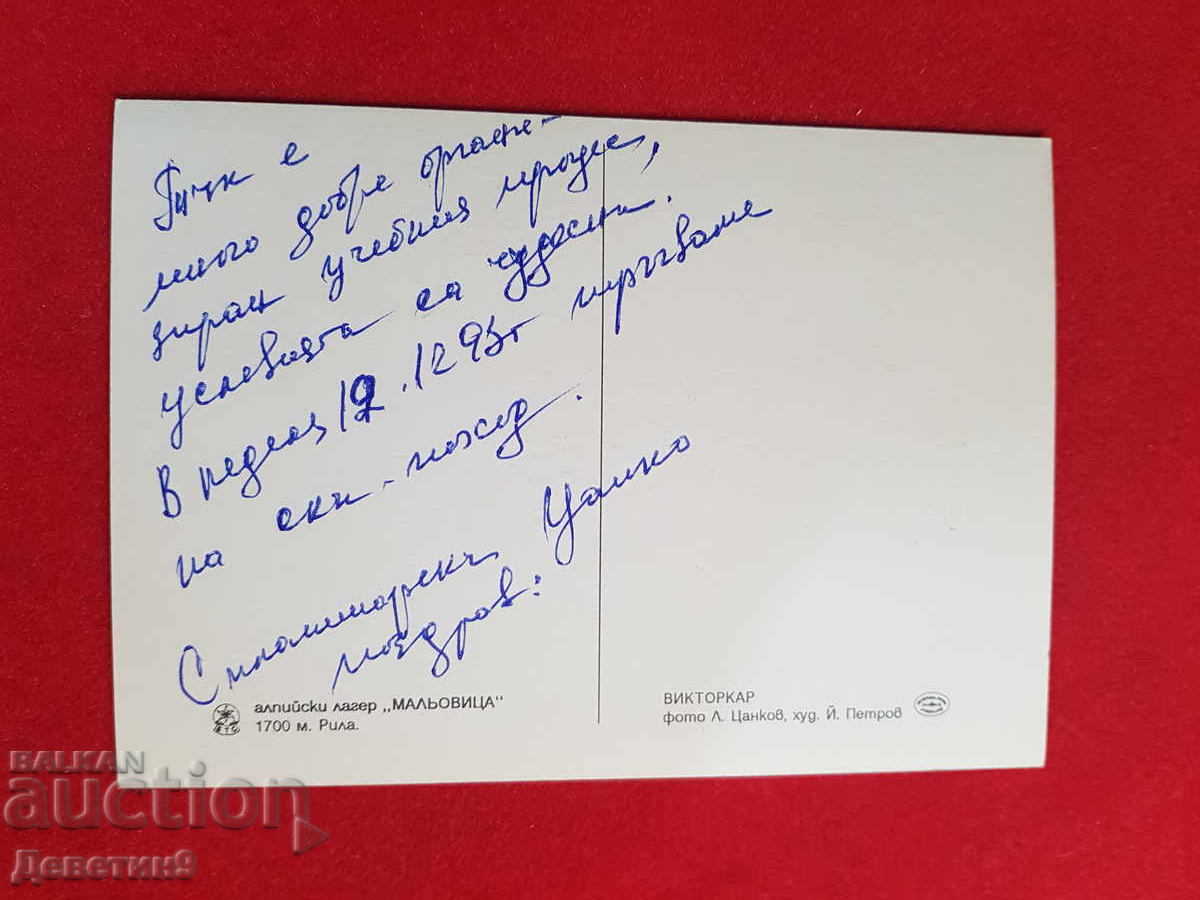 Тук е
много добре органи-
зиран учебния процес,
условията са чудесни.
В неделя 12.12 93г тръгваме
на ски-поход.
С планинарски
поздрав: Цанко
алпийски лагер „МАЛЬОВИЦА“
1700 м. Рила.
ВИКТОРКАР
фото Л. Цанков, худ. Й. Петров
БТС
BALKAN
auction
Деветин9